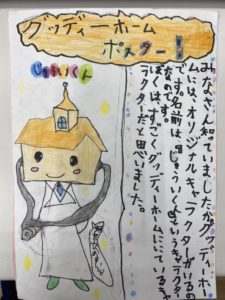 グッディーホーム
ポスター
じょういくん
みなさん知っていましたかグッディーホー
ムには、オリジナルキャラクターがいるの
です。名前は「じょういくん」というキャラクター
なのです。
ぼくは、すごくグッディーホームににているキャ
ラクターだと思いました。